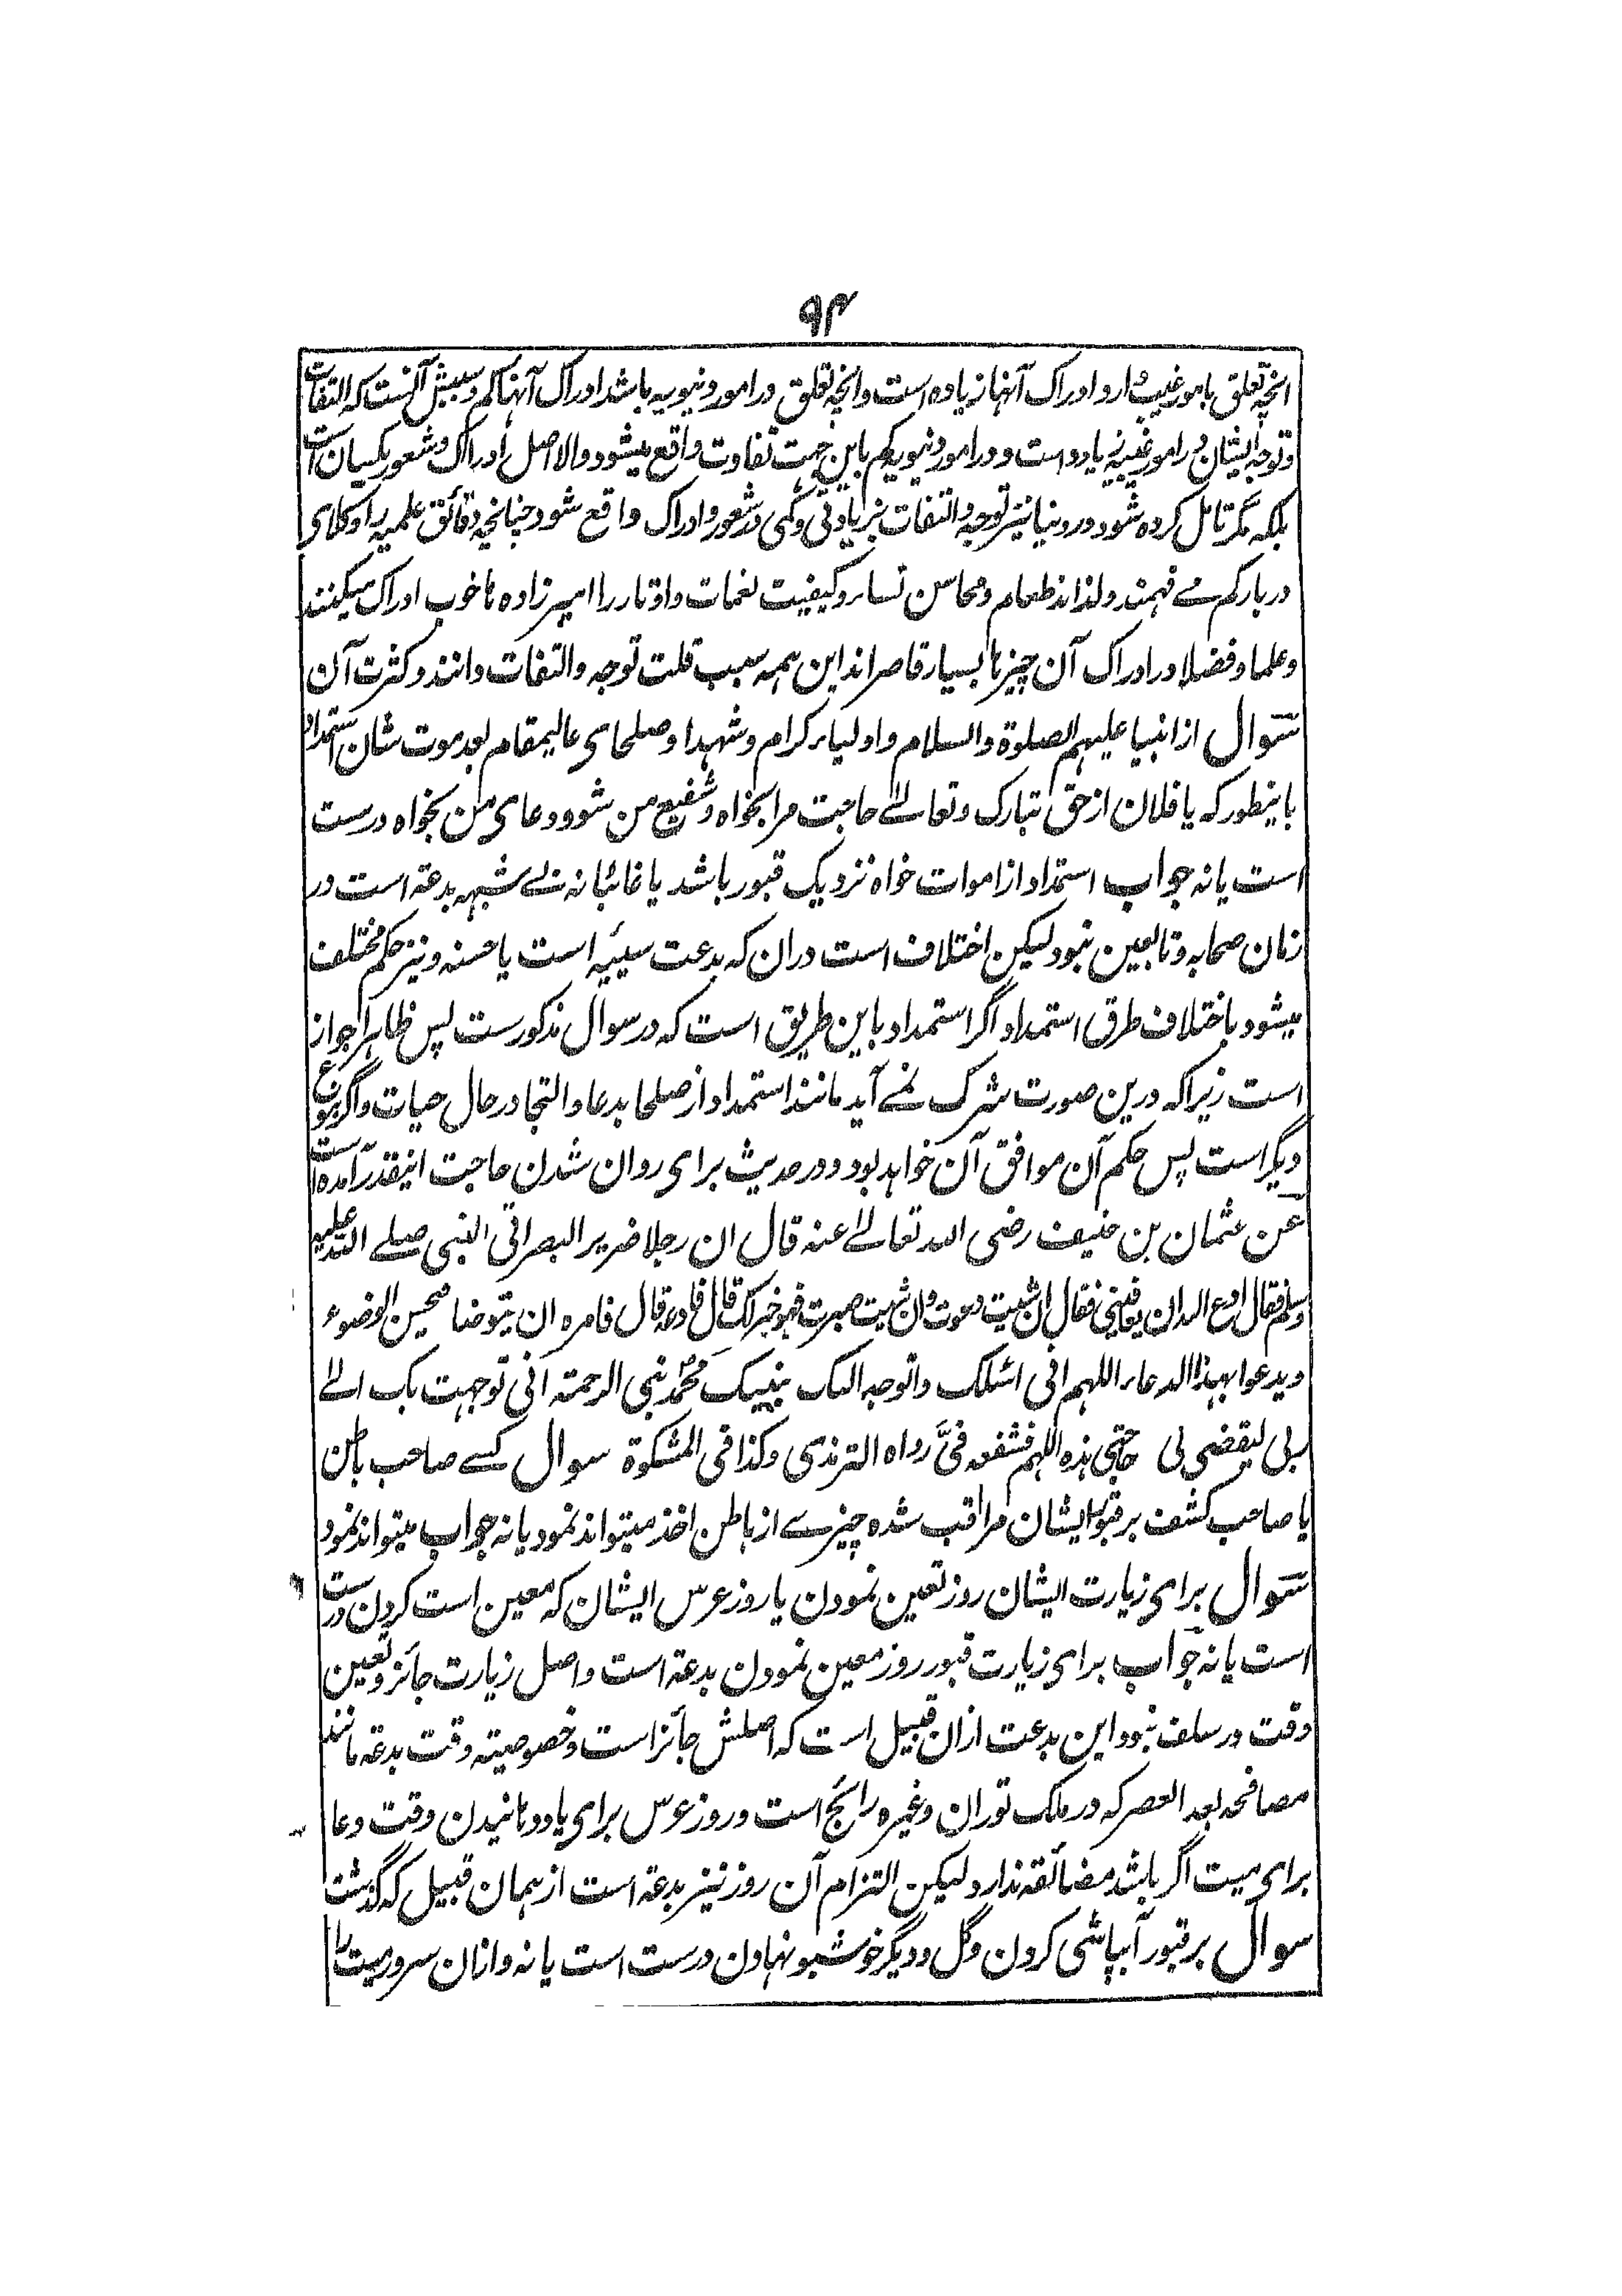 ۹۴
انچه تعلق بامور غیب دارد ادراک آنها زیاده است وانچه تعلق در امور دنیویه باشد ادراک آنها کم وسببش آنست که التفات
وتوجه ایشان در امور غیبیه زیاده است و در امور دنیویه کم باین جهت تفاوت واقع میشود والا اصل ادراک وشعور یکسان است
بلکه گر تامل کرده شود در دنیا نیز توجه والتفات بزیادتی وکمی در شعور وادراک واقع شود چنانچه دقائق علمیه را وکلای
دربار کم مے فهمند ولذائذ طعام ومحاسن نساء وکیفیت نغمات واوتار را امیرزاده ها خوب ادراک میکنند
وعلما وفضلا در ادراک آن چیزها بسیار قاصر اند این همه سبب قلت توجه والتفات دانند وکثرت آن
سوال از انبیا علیهم الصلوة والسلام واولیاء کرام وشهدا وصلحای عالیمقام بعد موت شان استمداد
باینطور که یا فلان از حق تبارک وتعالے حاجت مرا بخواه وشفیع من شو ودعا می من بخواه درست
است یا نه جواب استمداد از اموات خواه نزدیک قبور باشد یا غائبانه بے شبهه بدعة است در
زمان صحابه وتابعین نبود لیکن اختلاف است دران که بدعت سیئیه است یا حسنه ونیز حکم مختلف
میشود باختلاف طرق استمداد اگر استمداد باین طریق است که در سوال مذکورست پس ظاهرا جواز
است زیرا که درین صورت شرک نمے آید مانند استمداد از صلحا بدعا والتجا در حال حیات واگر بنوع
دیگر است پس حکم آن موافق آن خواهد بود ودر حدیث برای روان شدن حاجت اینقدر آمده است
عن عثمان بن حنیف رضی الله تعالے عنه قال ان رجلا ضریر البصر اتی النبی صلے الله علیه
وسلم فقال ادع الله ان یعافینی فقال ان شئیت دعوت وان شئیت صبرت فهو خیر لک قال فادعه قال فامره ان یتوضا فیحسن الوضوء
ویدعوا بهذا الدعاء اللهم انی اسئلک واتوجه الیک بنبیک محمد نبی الرحمة انی توجهت بک الے
ربی لیقضی لی حاجتی هذه اللهم فشفعه فیَّ رواه الترمذی وکذا فی المشکوة سوال کسے صاحب باطن
یا صاحب کشف بر قبور ایشان مراقب شده چیزے از باطن اخذ میتواند نمود یا نه جواب میتواند نمود
سوال برای زیارت ایشان روز تعین نمودن یا روز عرس ایشان که معین است کردن درست
است یا نه جواب برای زیارت قبور روز معین نمودن بدعة است واصل زیارت جائز وتعین
وقت در سلف نبود این بدعت ازان قبیل است که اصلش جائز است وخصوصیته وقت بدعة مانند
مصافحه بعد العصر که در ملک توران وغیره رائج است وروز عرس برای یاد دهانیدن وقت دعا
برای میت اگر باشد مضائقه ندارد لیکن التزام آن روز نیز بدعة است از همان قبیل که گذشت
سوال بر قبور آبپاشی کردن وگل ودیگر خوشبو نهادن درست است یا نه وازان سرور میت را